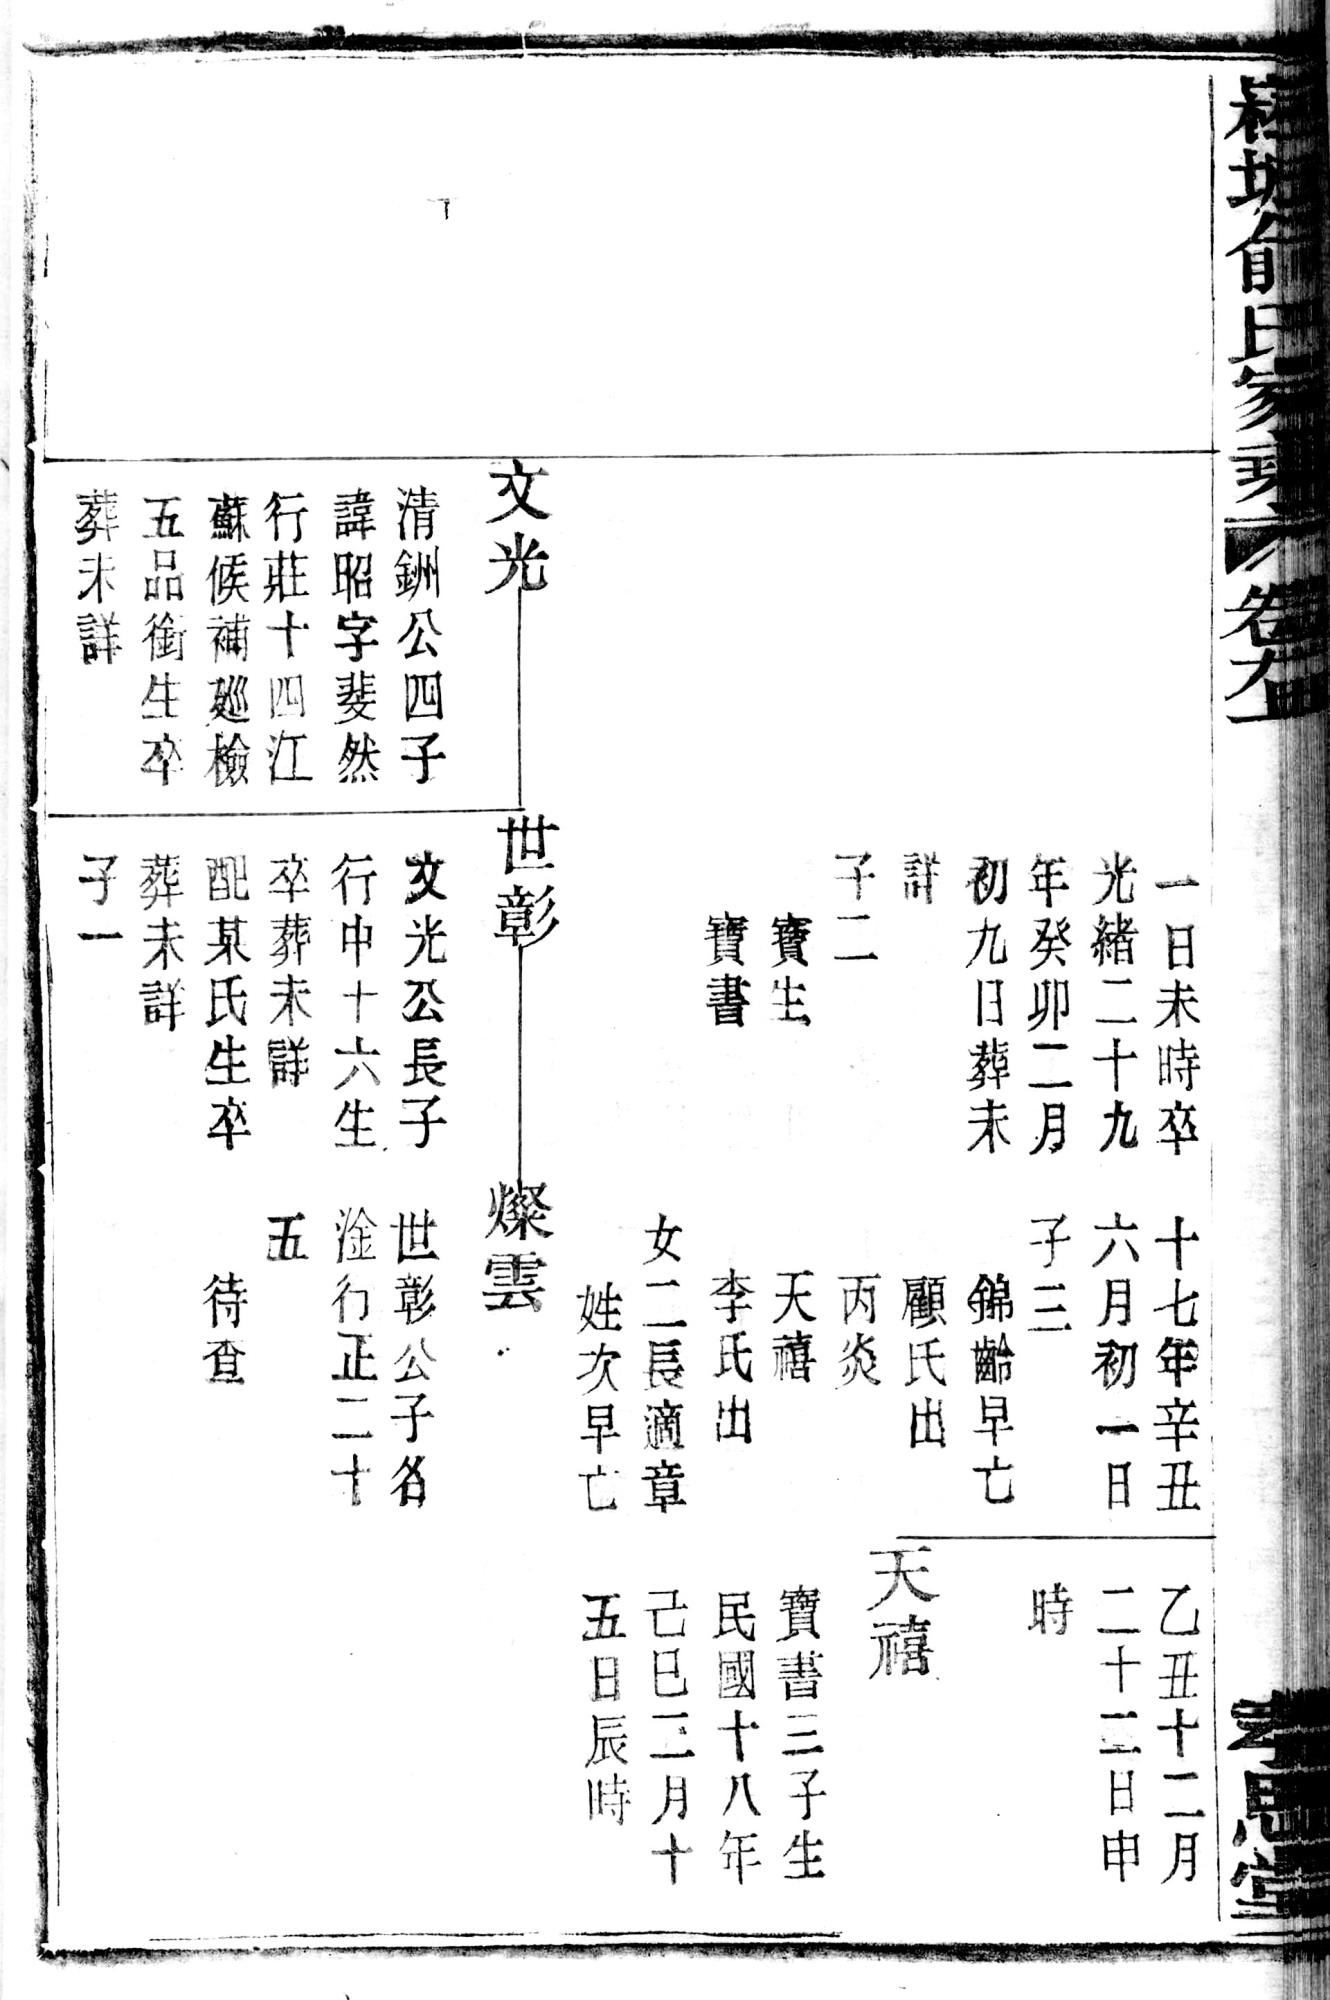 俞氏家乘
卷九
孝思堂
文光
清銂公四子
諱昭字斐然
行莊十四江
蘇候補廵檢
五品銜生卒
葬未詳
一日未時卒
光緒二十九
年癸卯二月
初九日葬未
詳
子二
寶生
寶書
世彰
文光公長子
行中十六生
卒葬未詳
配某氏生卒
葬未詳
子一
十七年辛丑
六月初一日
子三
錦齡早亡
顧氏出
丙炎
天禧
李氏出
女二長適章
姓次早亡
燦雲
世彰公子名
淦行正二十
五
待查
乙丑十二月
二十三日申
時
天禧
寶書三子生
民國十八年
己巳三月十
五日辰時